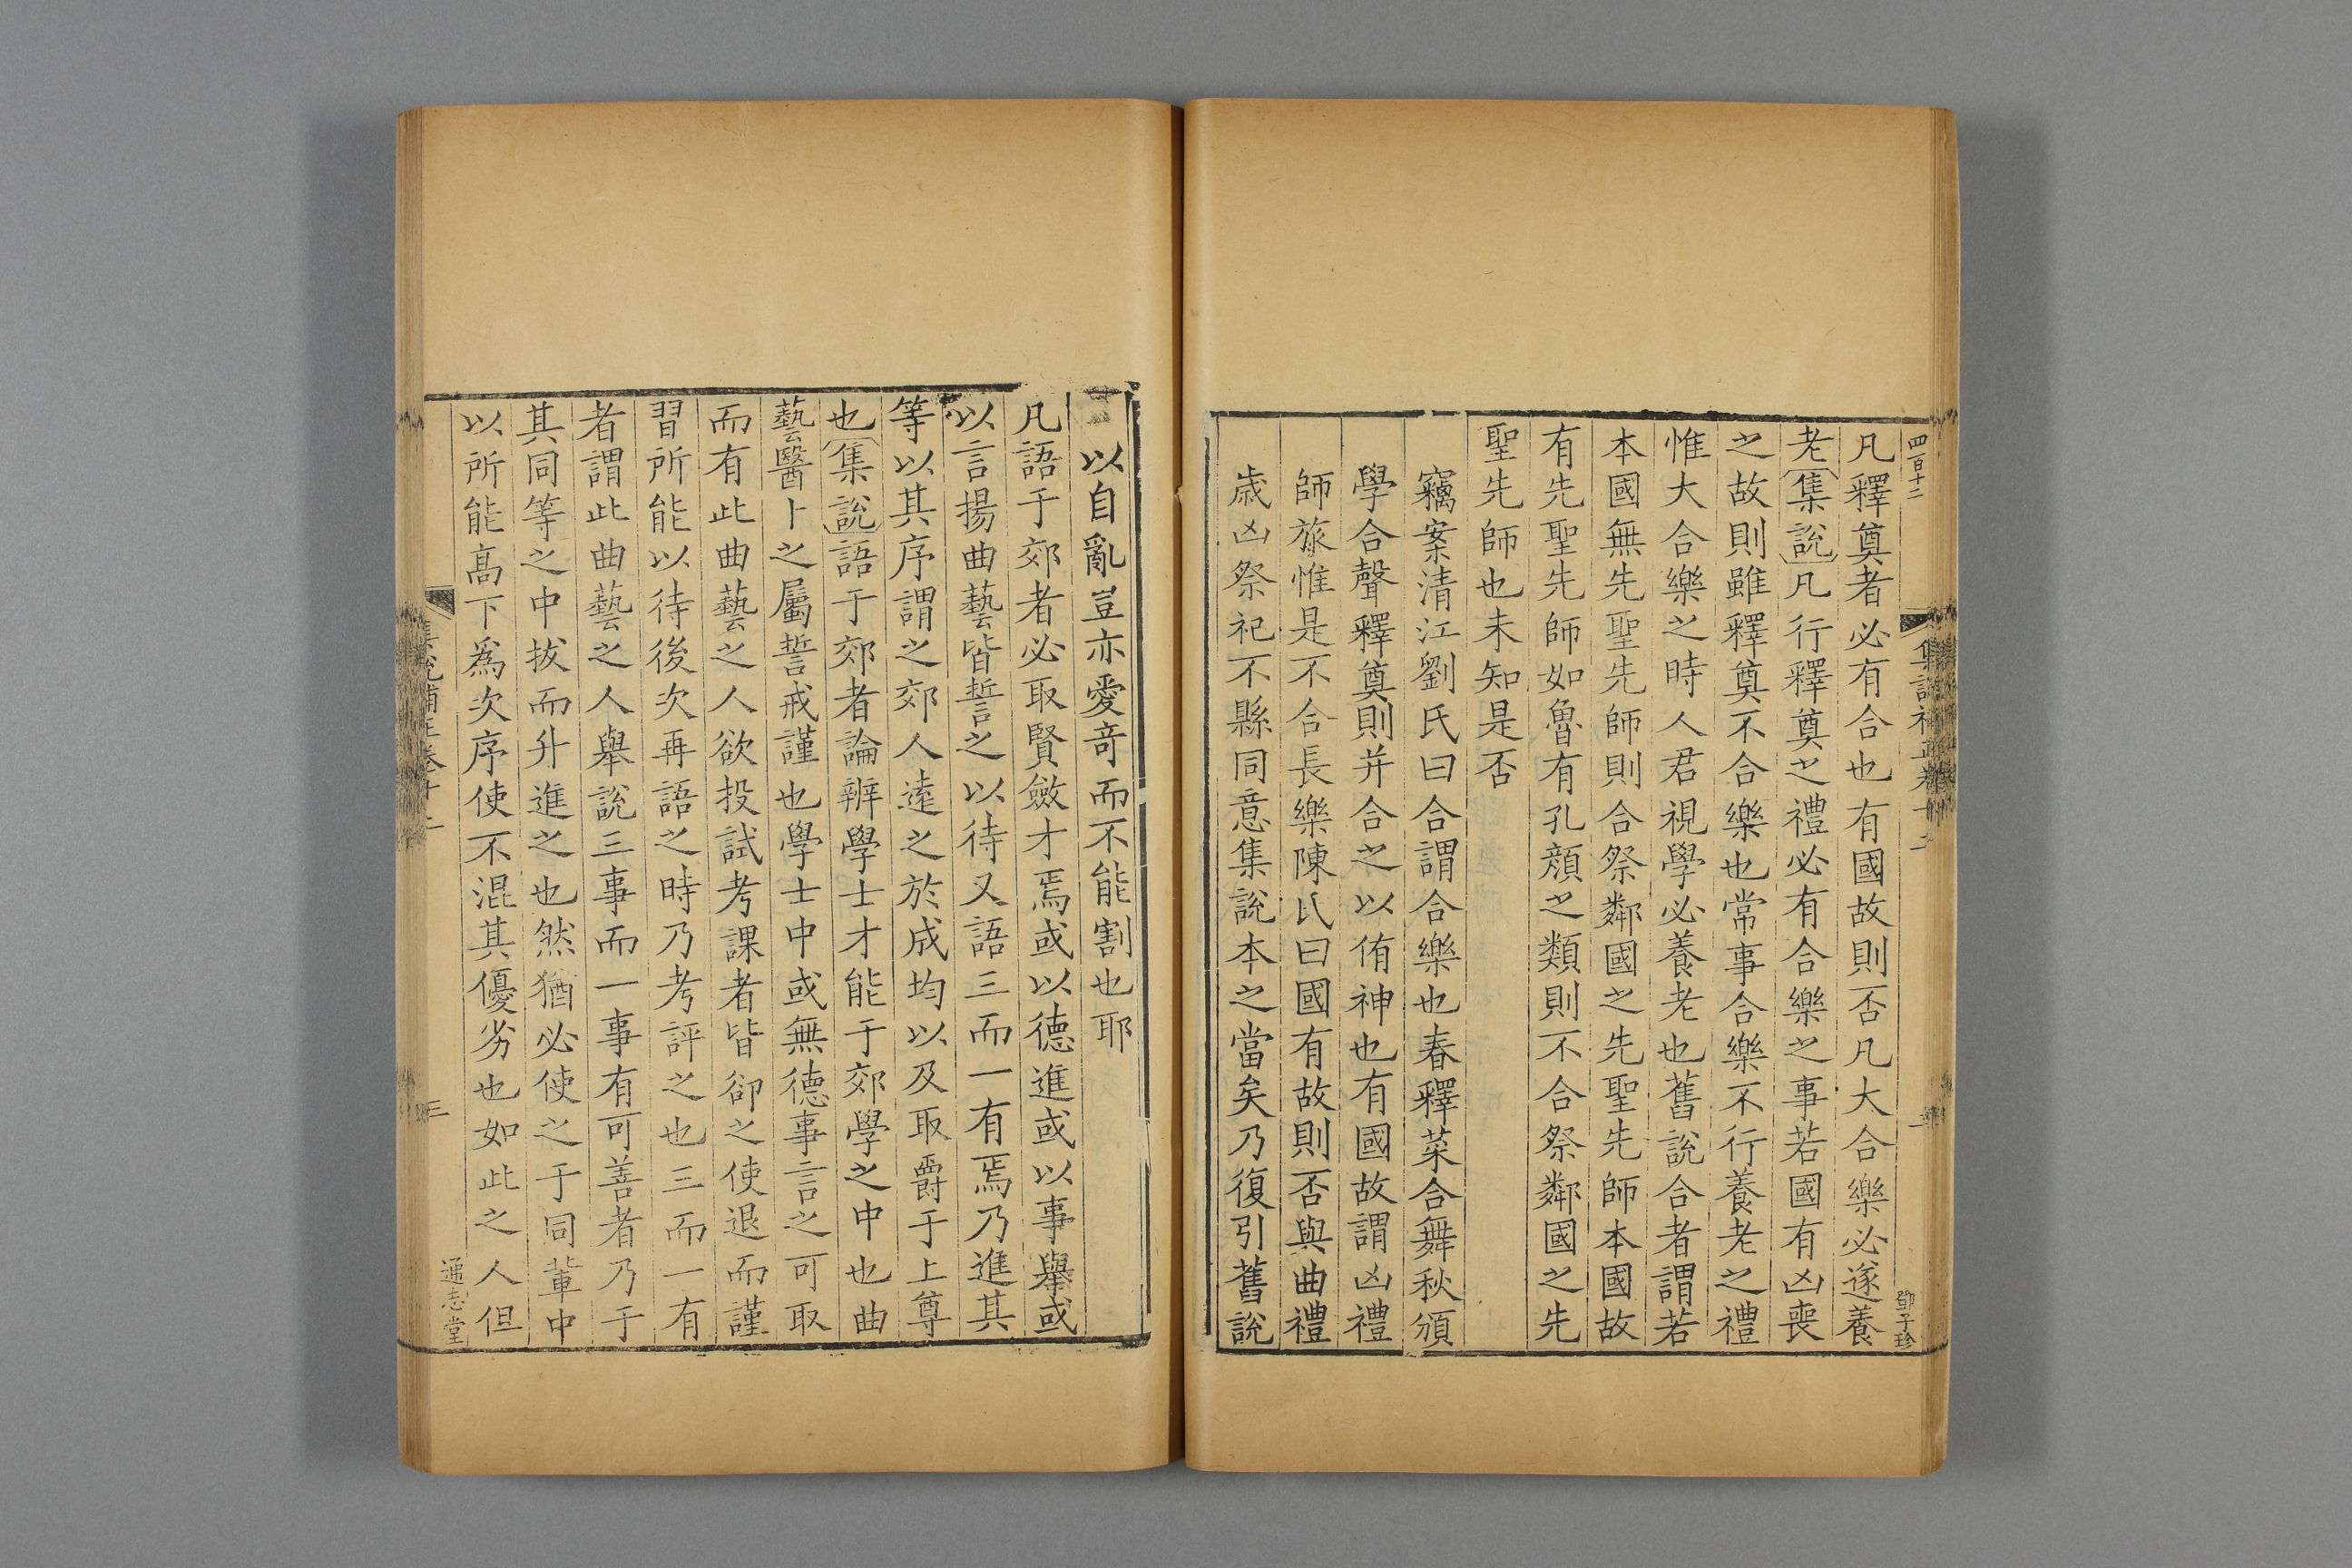 四百十二
集說補正卷十二
鄧子珍
凡釋奠者必有合也有國故則否凡大合樂必遂養
老集說凡行釋奠之禮必有合樂之事若國有凶喪
之故則雖釋奠不合樂也常事合樂不行養老之禮
惟大合樂之時人君視學必養老也舊說合者謂若
本國無先聖先師則合祭鄰國之先聖先師本國故
有先聖先師如魯有孔顏之類則不合祭鄰國之先
聖先師也未知是否
竊案清江劉氏曰合謂合樂也春釋菜合舞秋頒
學合聲釋奠則并合之以侑神也有國故謂凶禮
師旅惟是不合長樂陳氏曰國有故則否與曲禮
歲凶祭祀不縣同意集說本之當矣乃復引舊說
以自亂豈亦愛奇而不能割也耶
凡語于郊者必取賢斂才焉或以德進或以事舉或
以言揚曲藝皆誓之以待又語三而一有焉乃進其
等以其序謂之郊人遠之於成均以及取爵于上尊
也集說語于郊者論辨學士才能于郊學之中也曲
藝醫卜之屬誓戒謹也學士中或無德事言之可取
而有此曲藝之人欲投試考課者皆卻之使退而謹
習所能以待後次再語之時乃考評之也三而一有
者謂此曲藝之人舉說三事而一事有可善者乃于
其同等之中拔而升進之也然猶必使之于同輩中
以所能高下為次序使不混其優劣也如此之人但
集說補正卷十二
三
通志堂